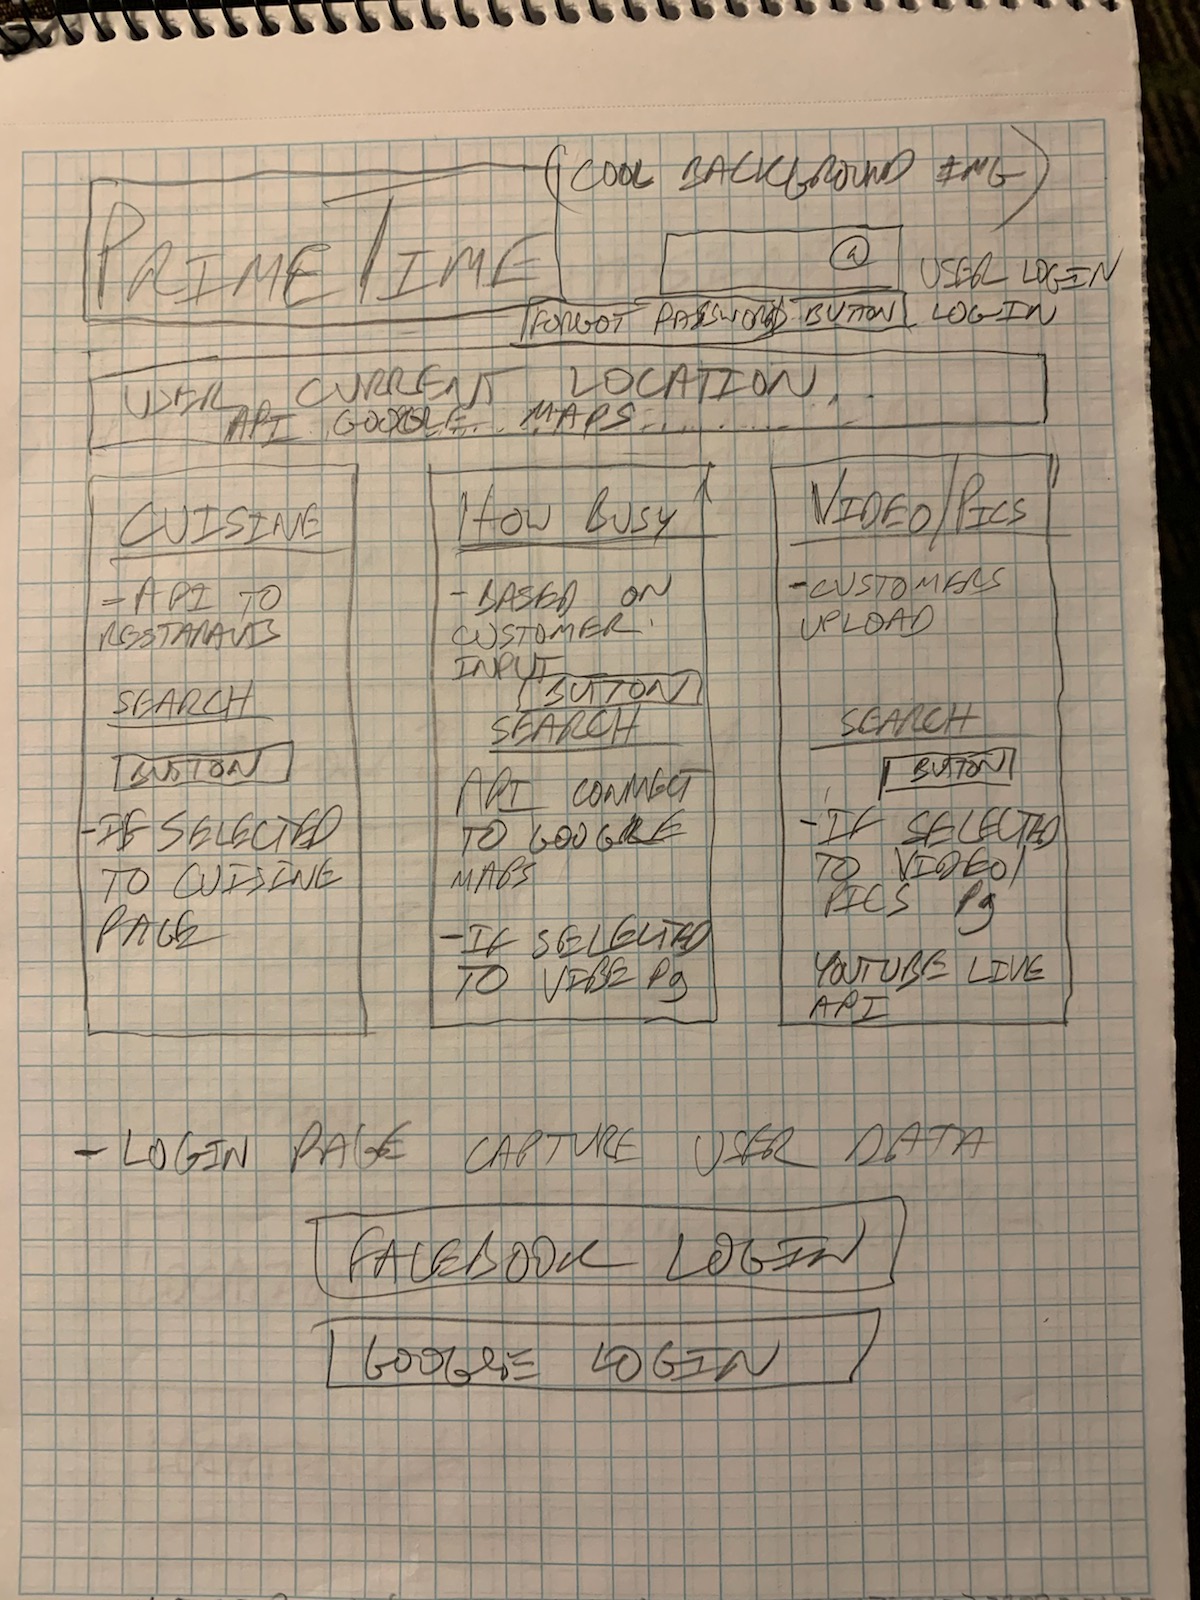 (COOL BACKGROUND IMG)
PRIMETIME
@
USER LOGIN
FORGOT PASSWORD BUTTON LOGIN
USER CURRENT LOCATION...
API GOOGLE... MAPS...........
CUISINE
- API TO
SEARCH
BUTTON
- IF SELECTED
TO CUISINE
PAGE
HOW BUSY
- BASED ON
CUSTOMER
INPUT
BUTTON
SEARCH
API CONNECT
TO GOOGLE
MAPS
- IF SELECTED
TO VIBE Pg
VIDEO/PICS
- CUSTOMERS
UPLOAD
SEARCH
BUTTON
- IF SELECTED
TO VIDEO/
PICS Pg
YOUTUBE LIVE
API
- LOGIN PAGE CAPTURE USER DATA
FACEBOOK LOGIN
GOOGLE LOGIN